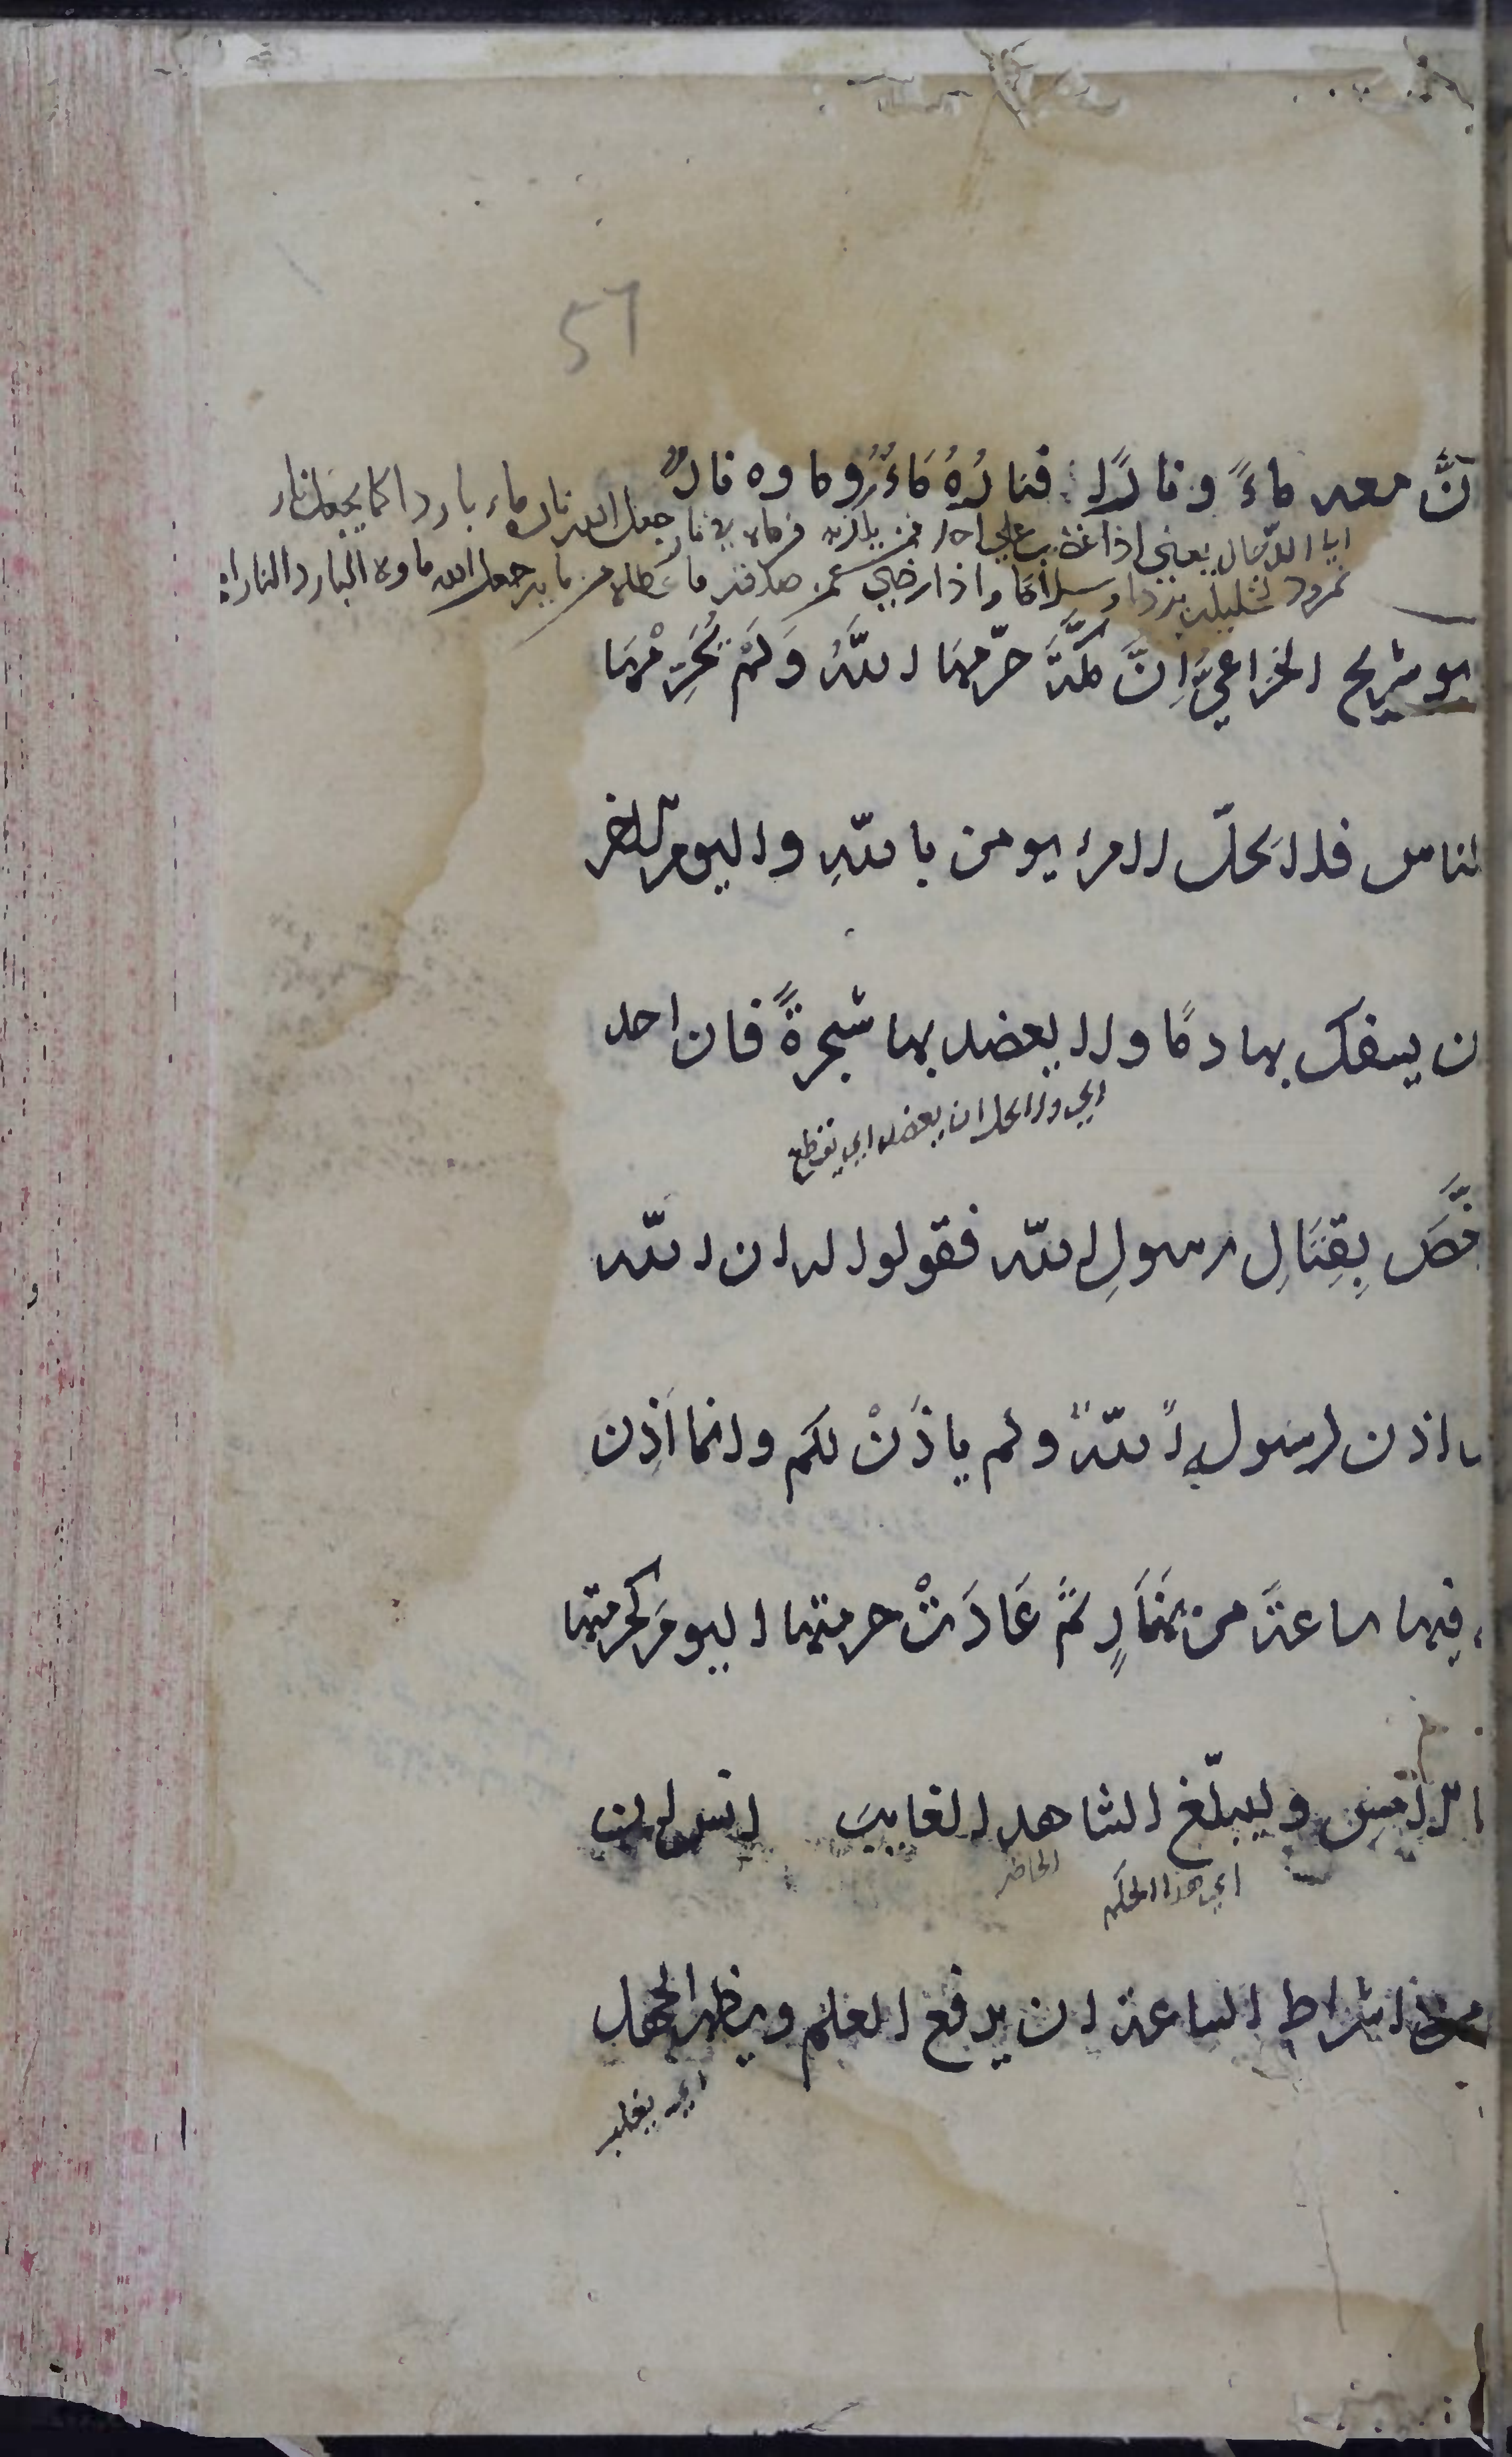 57
انَّ معه ماءً ونارًا فنارُهُ مَاءٌ وماوه نارٌ
اي الدّجال يعني اذا غضب علي احد جعل الله ناره ماء باردا كما يجعل نار
نمرود لخليله بردا وسلاما واذا رضي عمن صدقه جعل الله ماوه البارد النار
ابو شريح الخزاعيُّ اِنَّ مكَّةَ حرّمهَا اللَّهُ وَلَمْ يُحَرِّمْهَا
الناس فلا يحلّ لامرء يومن باللّهِ واليوم الآخر
ان يسفك بها دمًا ولا يعضد بها شجرةً فان احد
اي ولا يحل ان يعضد اي يقطع
ترخَّصَ بِقِتَالِ رسولِ اللّه فقولوا له ان اللّه
اذن لرسولِ اللّه ولم ياذَنْ لكم وانما اَذِن
فيها ساعةً من نهَارٍ ثمَّ عَادَتْ حرمتها اليومَ كحرمتها
بالامس وليبلّغ الشاهد الغايبَ انس
اي هذا الحكم الحاضر
من اشراط الساعة ان يرفع العلم ويظهر الجهل
اي يغلب